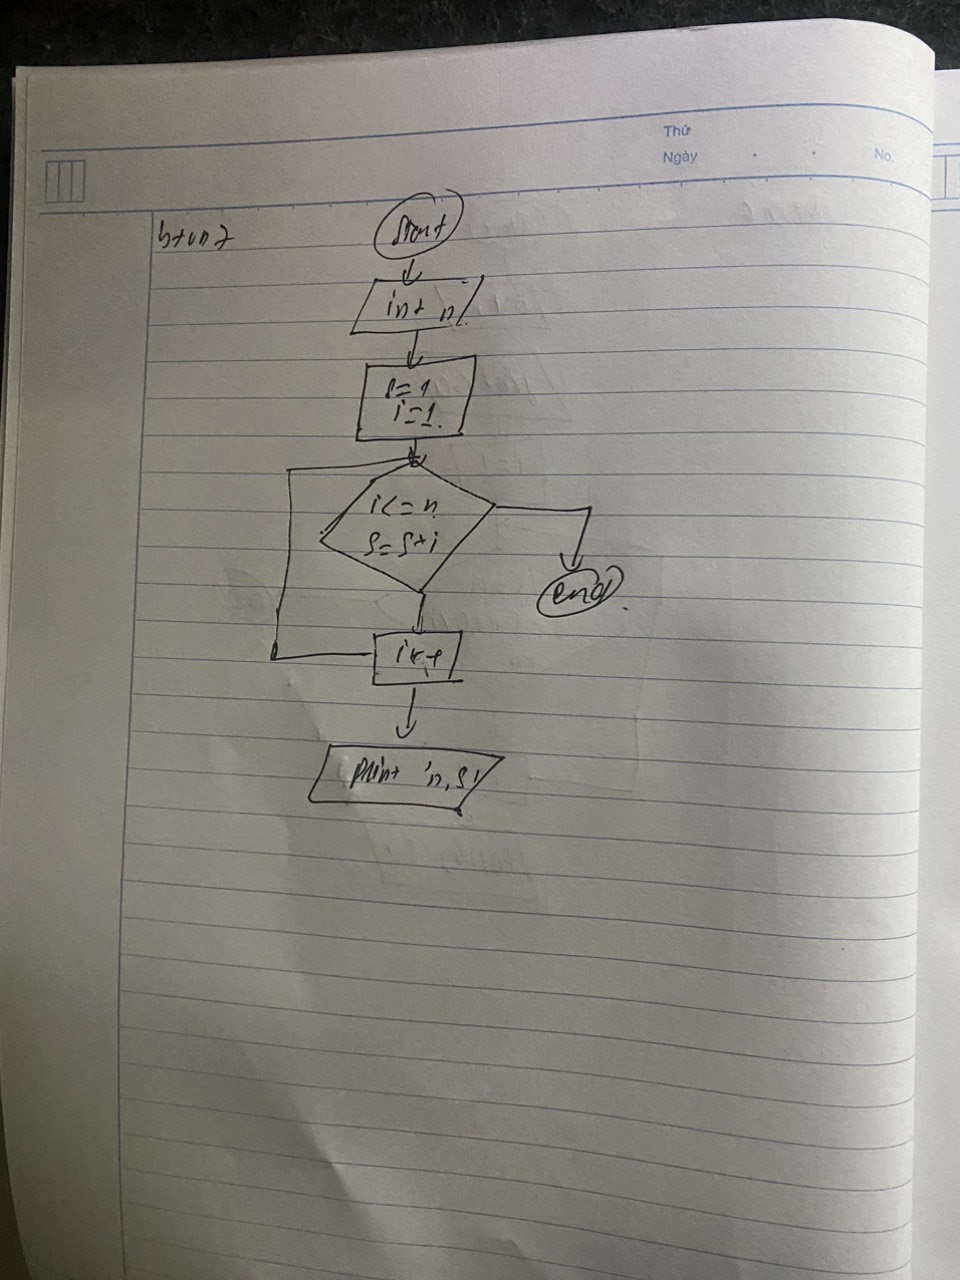 Thứ
Ngày . . No.
btvn7
Start
int n
s=1
i=1
i<=n
S=S+i
end
i++
print 'n,s'